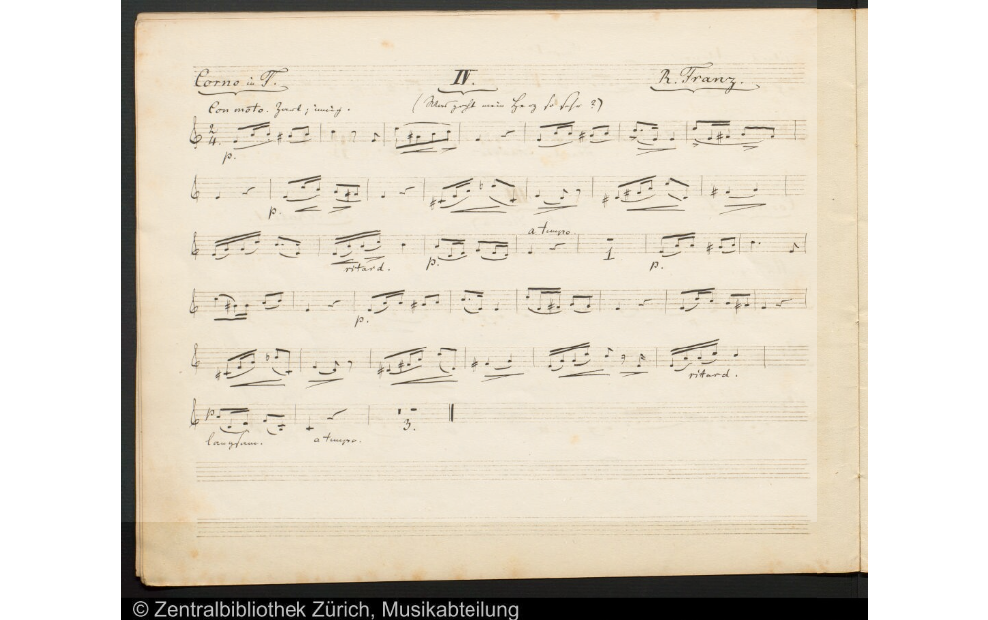 Corno in F. IV. R. Franz.
Con moto. Zart, innig. (Was pocht mein Herz so sehr?)
2
4
p.
p.
a tempo.
ritard. p. 1 p.
p.
ritard.
p.
langsam. a tempo. 3.
© Zentralbibliothek Zürich, Musikabteilung